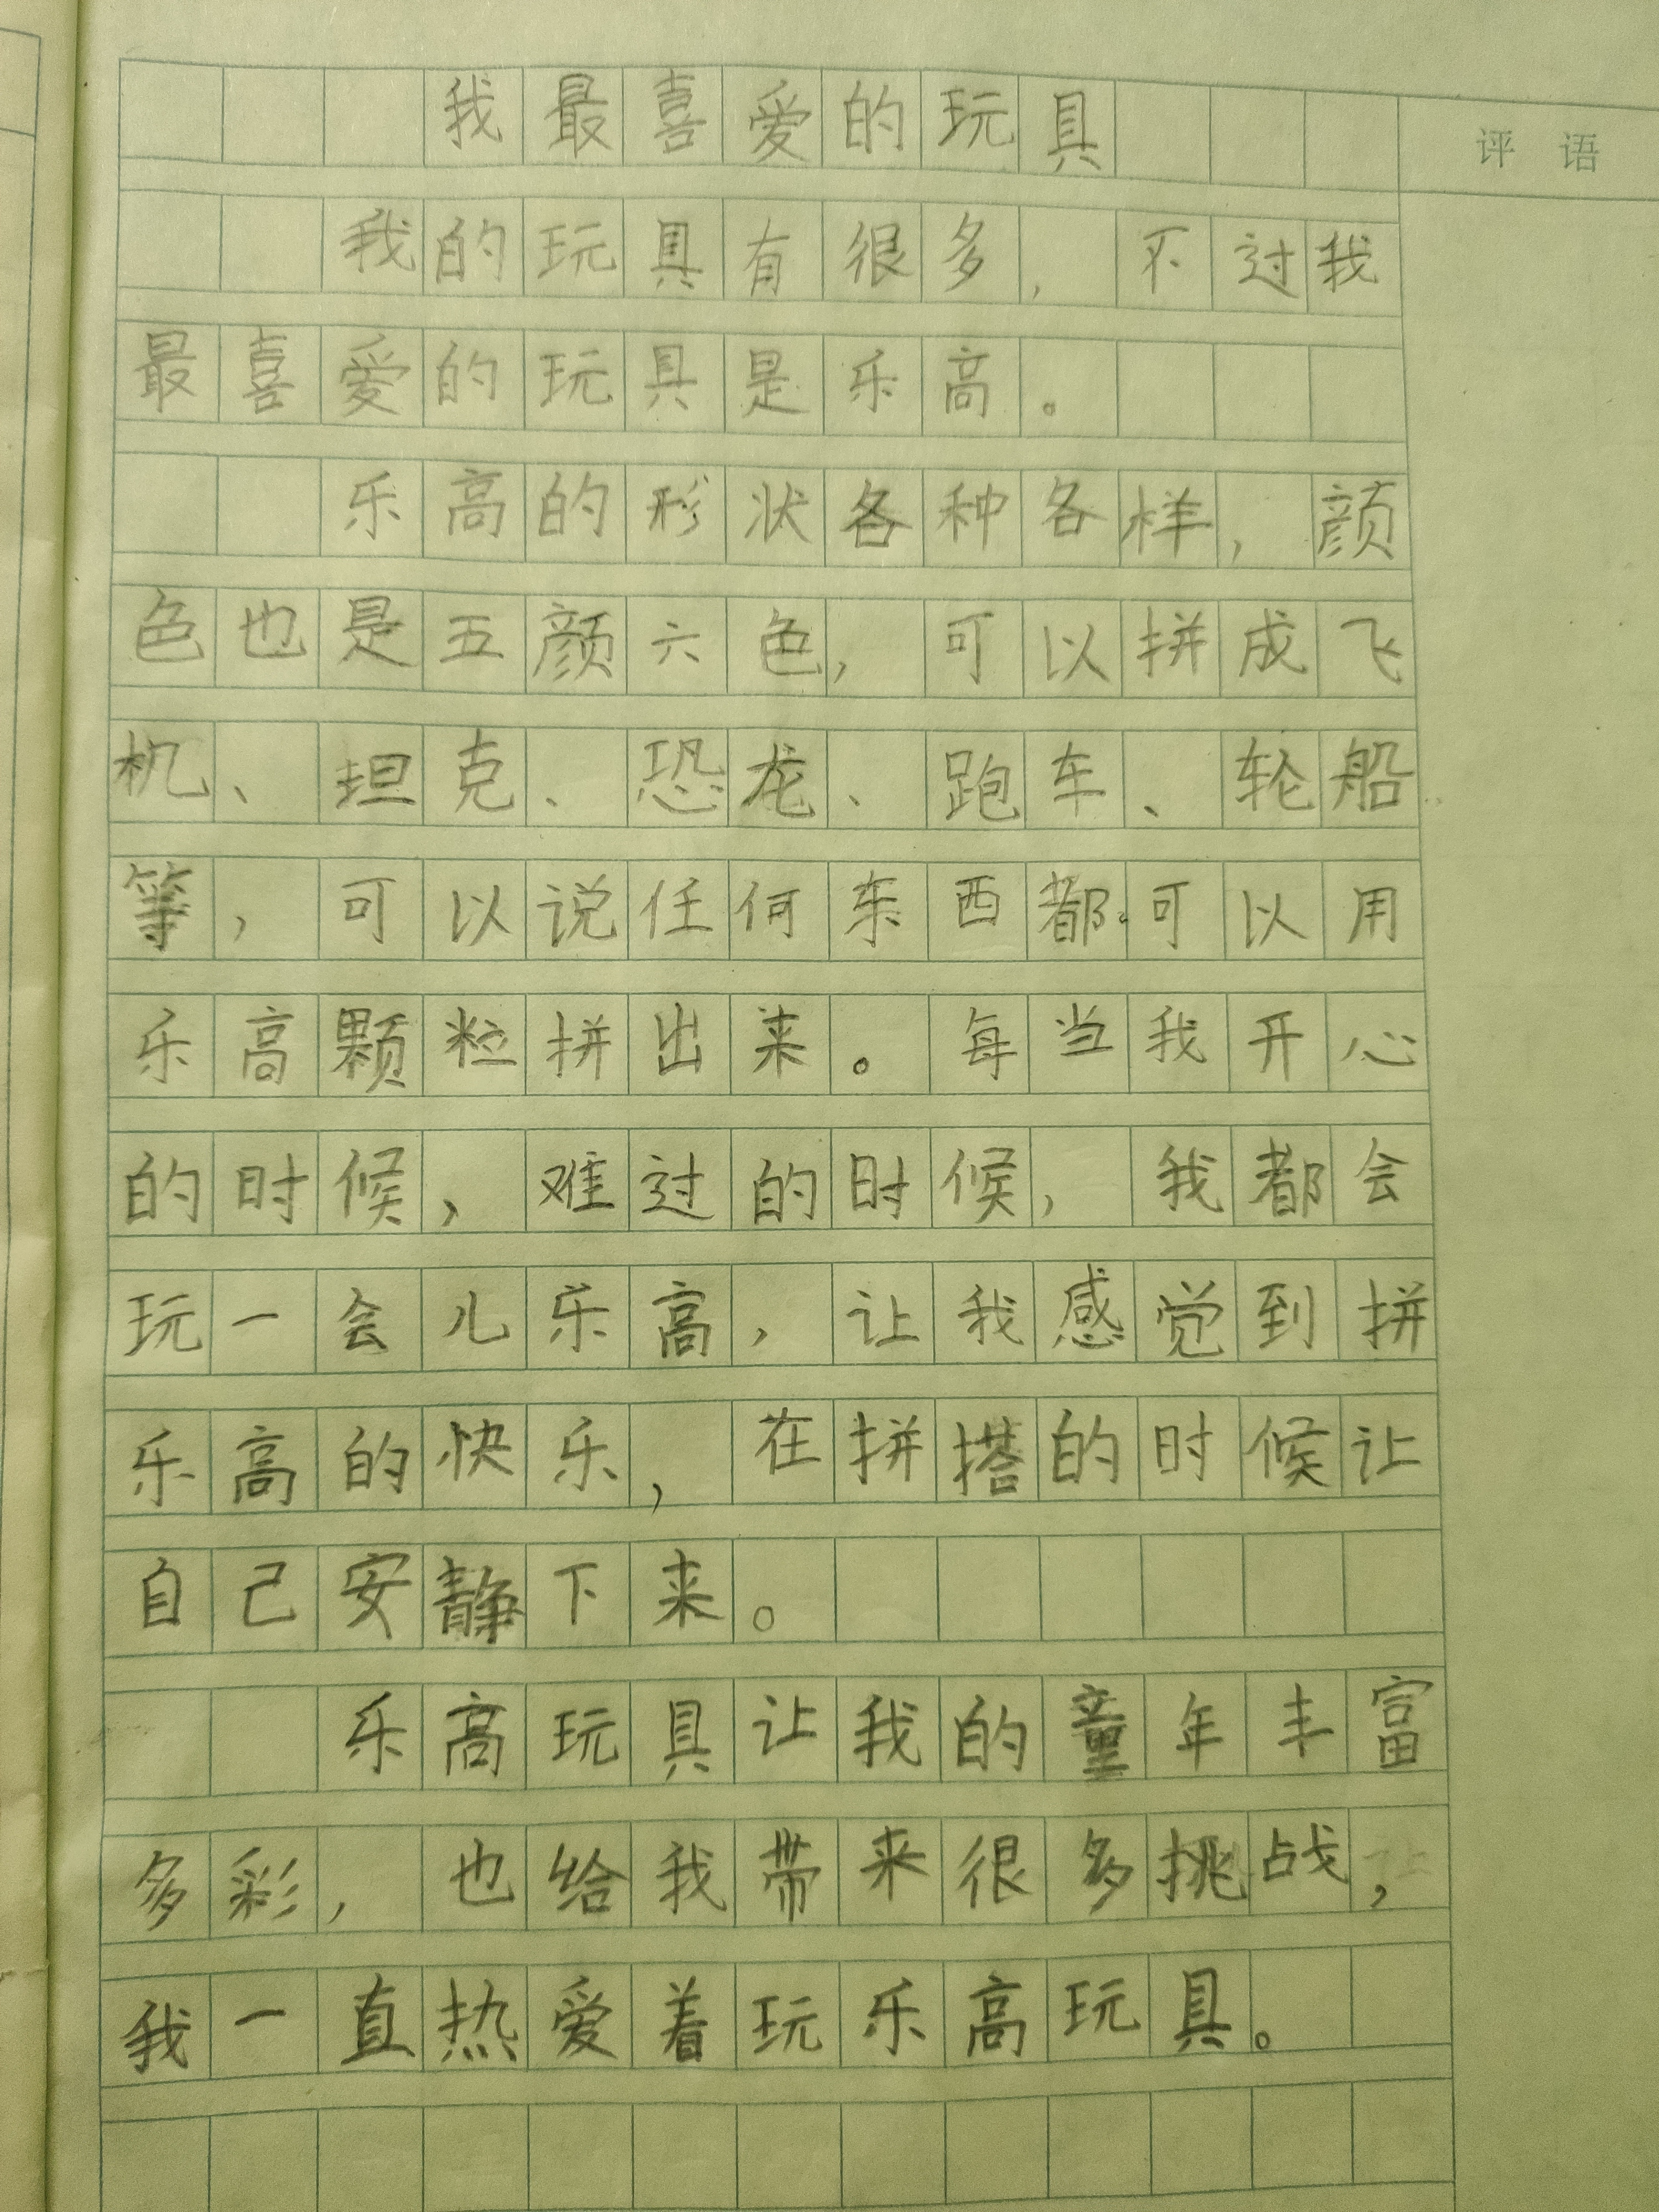 我最喜爱的玩具
评语
我的玩具有很多，不过我
最喜爱的玩具是乐高。
乐高的形状各种各样，颜
色也是五颜六色，可以拼成飞
机、坦克、恐龙、跑车、轮船
等，可以说任何东西都可以用
乐高颗粒拼出来。每当我开心
的时候，难过的时候，我都会
玩一会儿乐高，让我感觉到拼
乐高的快乐，在拼搭的时候让
自己安静下来。
乐高玩具让我的童年丰富
多彩，也给我带来很多挑战，
我一直热爱着玩乐高玩具。